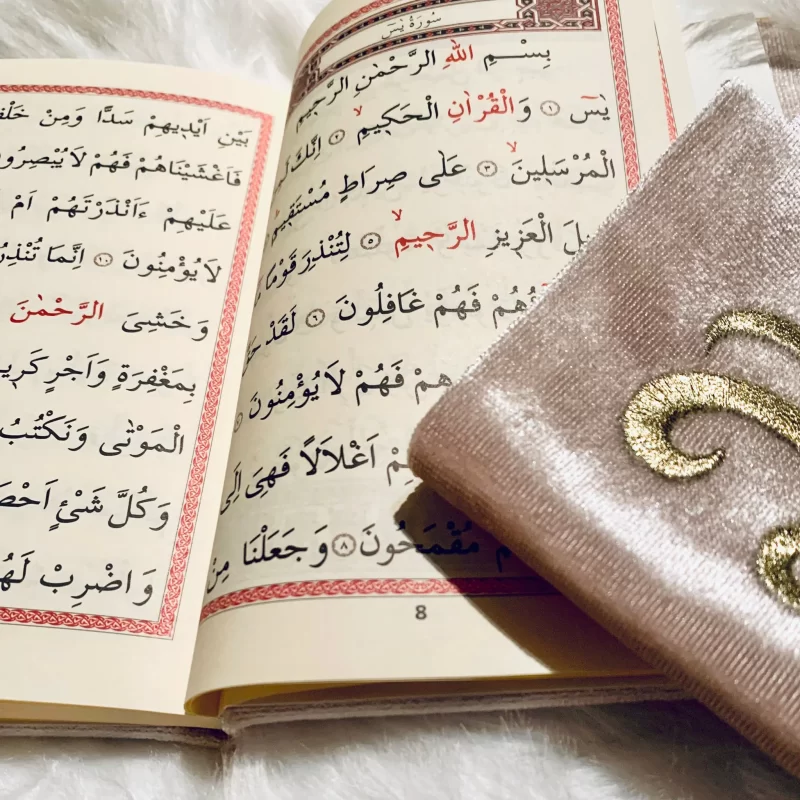 سُورَةُ يٰسٓ
بِسْمِ اللّٰهِ الرَّحْمٰنِ الرَّحِيمِ
يٰسٓ ۝١ وَالْقُرْاٰنِ الْحَكِيمِ ۝٢ اِنَّكَ
الْمُرْسَلِينَ ۝٣ عَلٰى صِرَاطٍ مُسْتَقِيمٍ
الْعَزِيزِ الرَّحِيمِ ۝٥ لِتُنْذِرَ قَوْمًا
فَهُمْ غَافِلُونَ ۝٦ لَقَدْ
فَهُمْ لَا يُؤْمِنُونَ
اَغْلَالًا فَهِىَ اِلَى
مُقْمَحُونَ ۝٨ وَجَعَلْنَا مِنْ
8
بَيْنِ اَيْدِيهِمْ سَدًّا وَمِنْ
فَاَغْشَيْنَاهُمْ فَهُمْ لَا يُبْصِرُونَ
عَلَيْهِمْ ءَاَنْذَرْتَهُمْ اَمْ
لَا يُؤْمِنُونَ ۝١٠ اِنَّمَا تُنْذِرُ
وَخَشِىَ الرَّحْمٰنَ
بِمَغْفِرَةٍ وَاَجْرٍ كَرِيمٍ
الْمَوْتٰى وَنَكْتُبُ
وَكُلَّ شَىْءٍ
وَاضْرِبْ